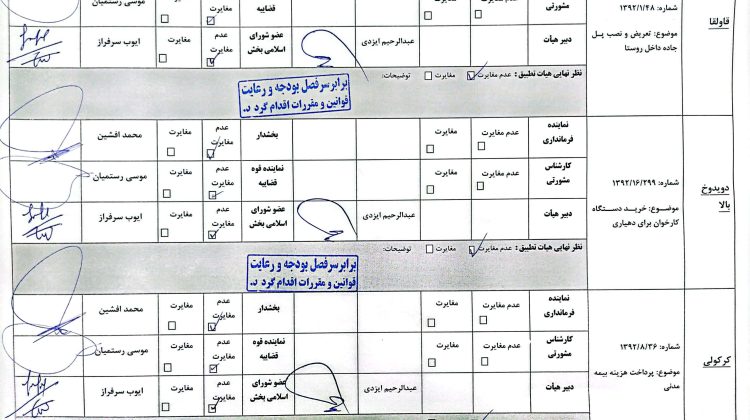 قاولقا
شماره: ۱۳۹۲/۱/۴۸
موضوع: تعریض و نصب پل
جاده داخل روستا
مشورتی
عدم مغایرت
مغایرت
قضاییه
مغایرت
مغایرت
موسی رستمیان
دبیر هیات
عبدالرحیم ایزدی
عضو شورای
اسلامی بخش
عدم
مغایرت
مغایرت
ایوب سرفراز
نظر نهایی هیات تطبیق: عدم مغایرت مغایرت توضیحات:
برابر سرفصل بودجه و رعایت
قوانین و مقررات اقدام گرد د.
دویدوخ
بالا
شماره: ۱۳۹۲/۱۶/۲۹۹
موضوع: خرید دستگاه
کارخوان برای دهیاری
نماینده
فرمانداری
عدم مغایرت
مغایرت
بخشدار
عدم
مغایرت
مغایرت
محمد افشین
کارشناس
مشورتی
عدم مغایرت
مغایرت
نماینده قوه
قضاییه
عدم
مغایرت
مغایرت
موسی رستمیان
دبیر هیات
عبدالرحیم ایزدی
عضو شورای
اسلامی بخش
عدم
مغایرت
مغایرت
ایوب سرفراز
نظر نهایی هیات تطبیق: عدم مغایرت مغایرت توضیحات:
برابر سرفصل بودجه و رعایت
قوانین و مقررات اقدام گرد د.
کرکولی
شماره: ۱۳۹۲/۸/۳۶
موضوع: پرداخت هزینه بیمه
مدنی
نماینده
فرمانداری
عدم مغایرت
مغایرت
بخشدار
عدم
مغایرت
مغایرت
محمد افشین
کارشناس
مشورتی
عدم مغایرت
مغایرت
نماینده قوه
قضاییه
عدم
مغایرت
مغایرت
موسی رستمیان
دبیر هیات
عبدالرحیم ایزدی
عضو شورای
اسلامی بخش
عدم
مغایرت
مغایرت
ایوب سرفراز